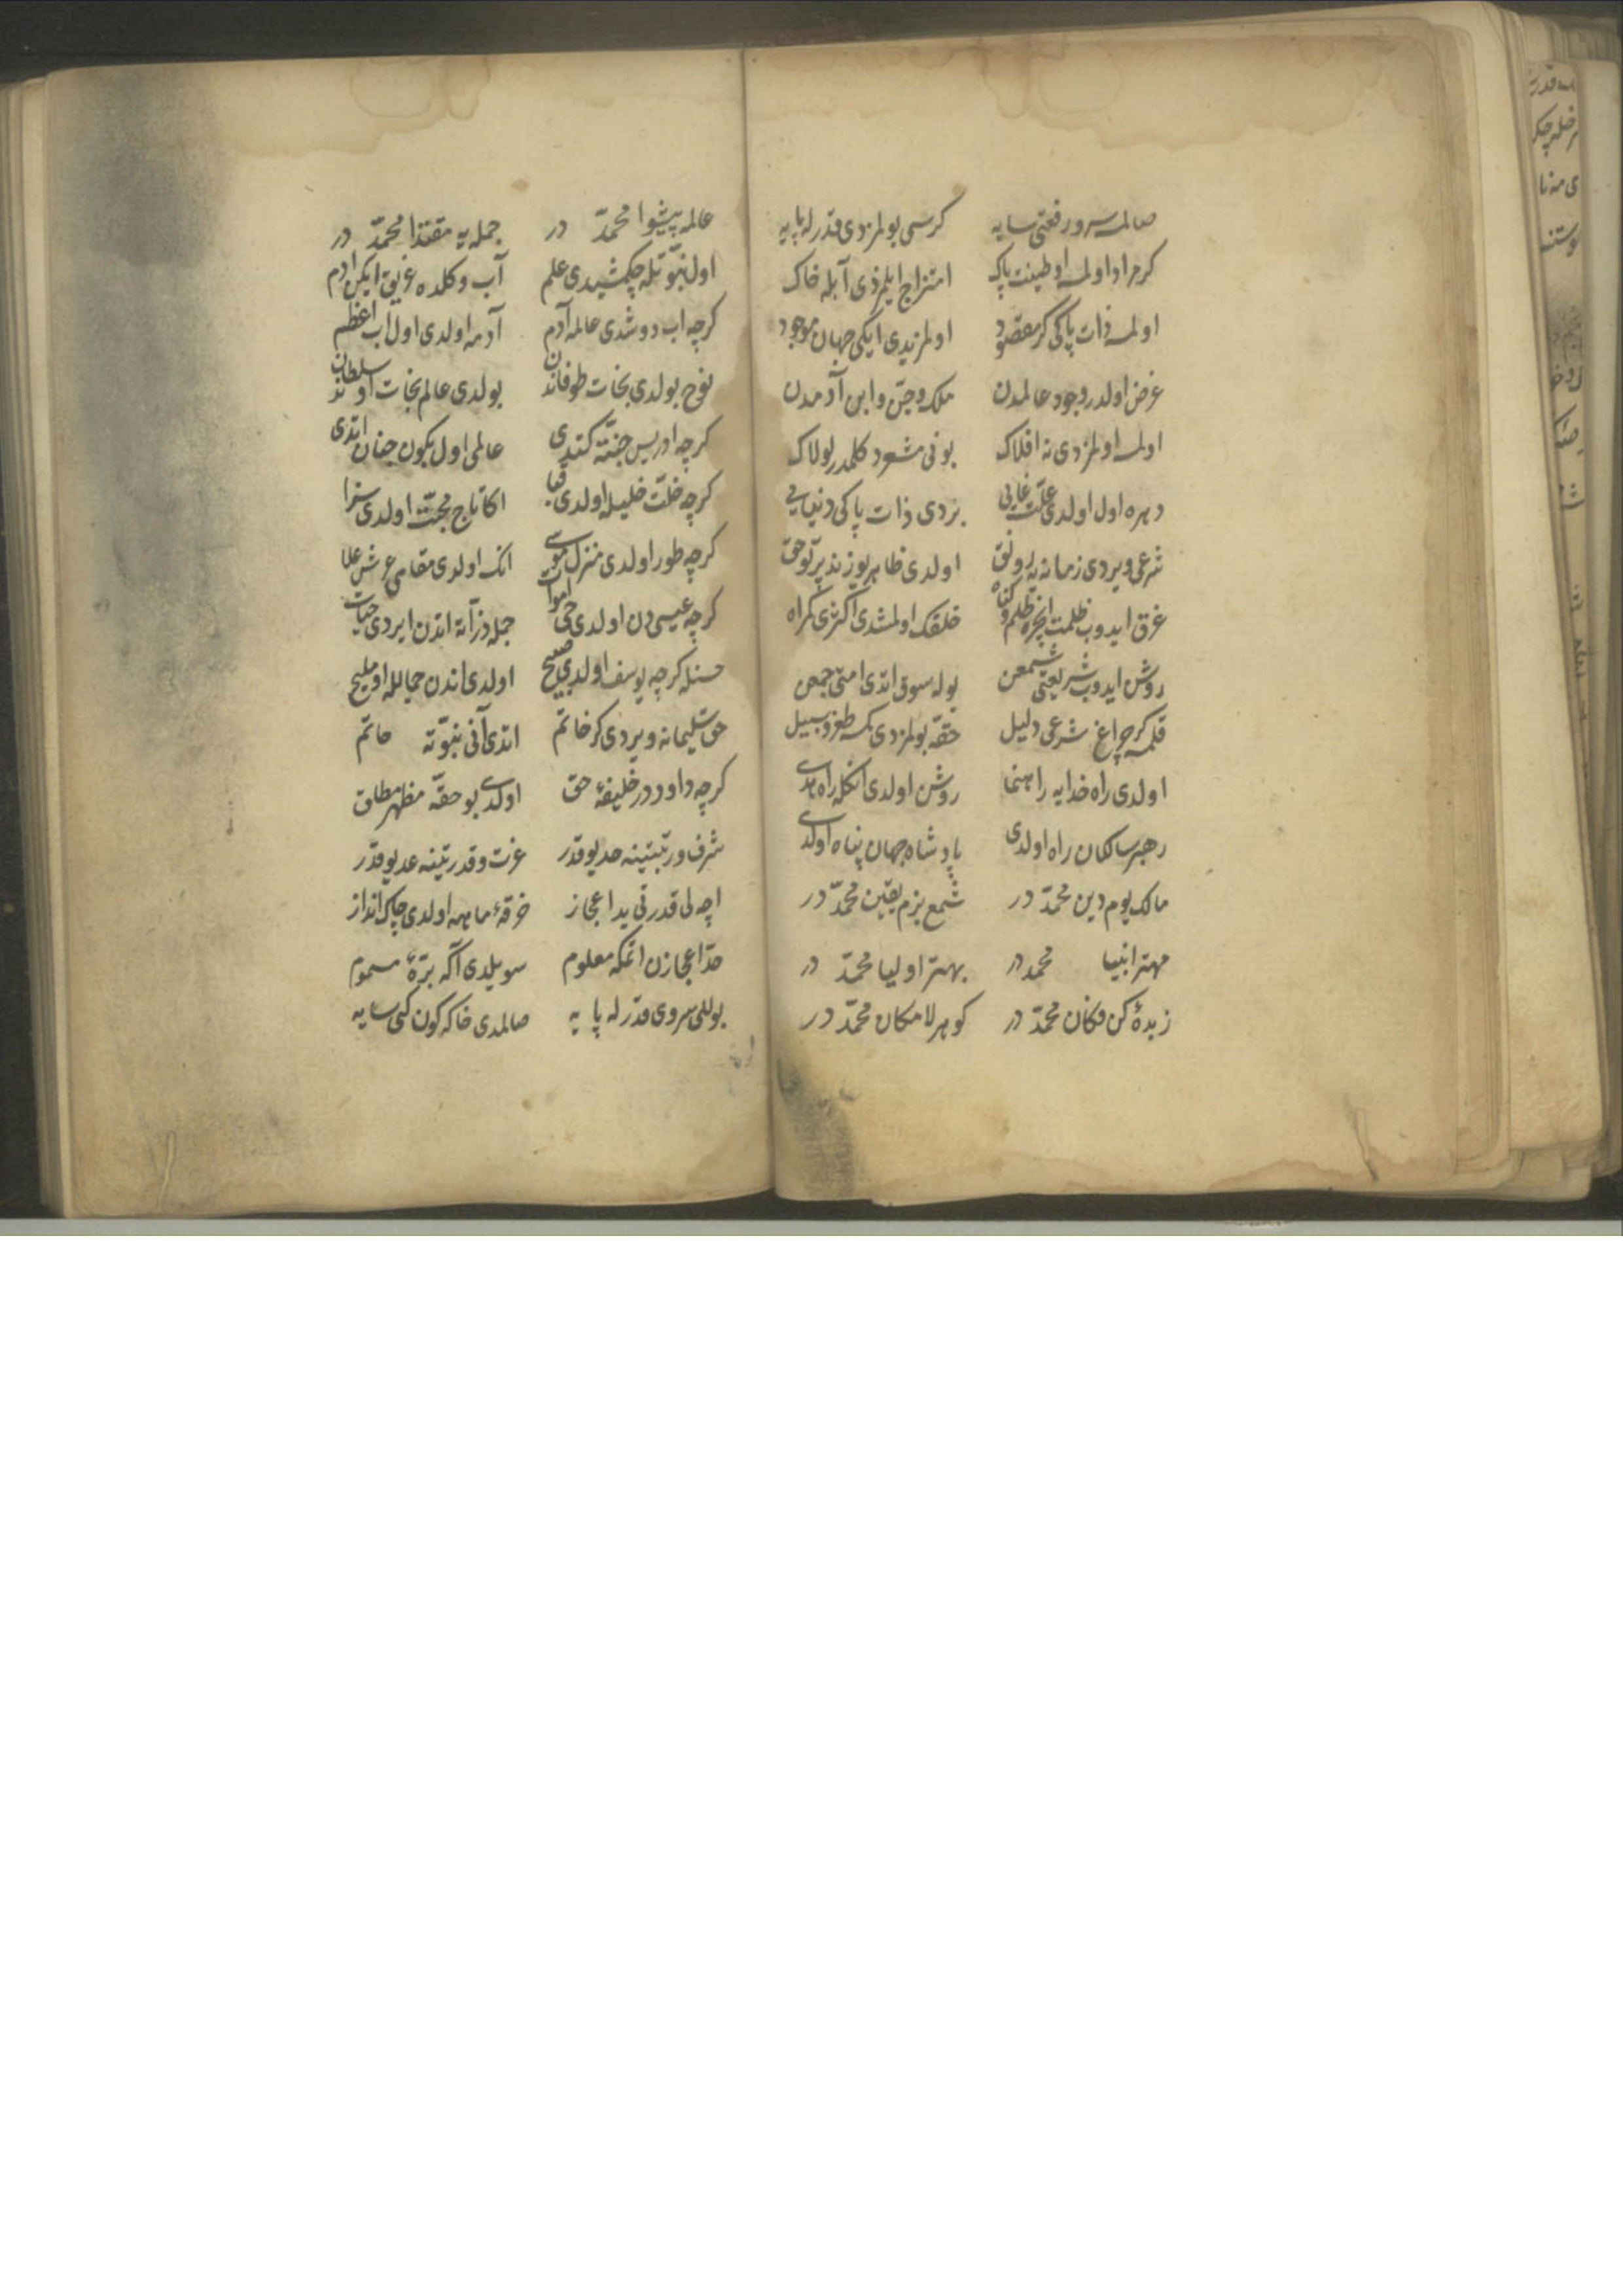 صالمسه سرو رفعتی سایه کرسی بولمزدی قدرله پایه
کر مراد اولمسه او طینت پاک امتزاج ایلمزدی آبله خاک
اولمسه ذات پاکی کر مقصود اولمزیدی ایکی جهان موجود
غرض اولدر وجود عالمدن ملک و جن و ابن آدمدن
اولمسه اولمزدی نه افلاک بونی مشعر دکلمدر لولاک
دهره اول اولدی علت غایی بزدی ذات پاکی دنیایی
شرعی ویردی زمانه یه رونق اولدی ظاهر یوزنده پرتو حق
غرق ایدوب ظلمت ایچره ظلم و کناه خلقک اولمشدی اکثری کمراه
روشن ایدوب شریعتی شمعن یوله سوق اتدی امتی جمعن
قلمسه کر چراغ شرعی دلیل حقه بولمزدی کمسه طرز و سبیل
اولدی راه خدایه راهنما روشن اولدی انکله راه هدی
رهبر سالکان راه اولدی پادشاه جهان پناه اولدی
مالک یوم دین محمّد در شمع بزم یقین محمّد در
مهتر انبیا محمد در بهتر اولیا محمّد در
زبدهٔ کن فکان محمّد در کوهر لامکان محمّد در
عالمه پیشوا محمّد در جمله یه مقتدا محمّد در
اول نبوّتله چکمشیدی علم آب و کلده غریق ایکن ادم
کرچه اب دوشدی عالمه آدم آدمه اولدی اول اب اعظم
نوح بولدی نجات طوفاندن بولدی عالم نجات او سلطاندن
کرچه ادریس جنّته کتدی عالمی اول بکون جنان اتدی
کرچه خلّت خلیله اولدی قبا اکا تاج محبّت اولدی سزا
کرچه طور اولدی منزل موسی انک اولدی مقامی عرش علا
کرچه عیسی دن اولدی حی اموات جمله ذرّاته اندن ایردی حیات
حسنله کرچه یوسف اولدی صبیح اولدی اندن جمالله او ملیح
حق سلیمانه ویردی کر خاتم اتدی آنی نبوّته خاتم
کرچه داود در خلیفهٔ حق اولدی بو حقّه مظهر مطلق
شرف و رتبتینه حد یوقدر عزت و قدرتینه عد یوقدر
اچه لی قدرتی ید اعجاز خرقهٔ ماهه اولدی چاک انداز
حدّ اعجازن اتمکه معلوم سویلدی آکه برّهٔ مسموم
بوللی سروی قدرله پایه صالمدی خاکه کون کبی سایه